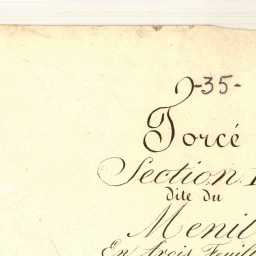 -35-
Torcé
Section
dite du
Menil
En trois